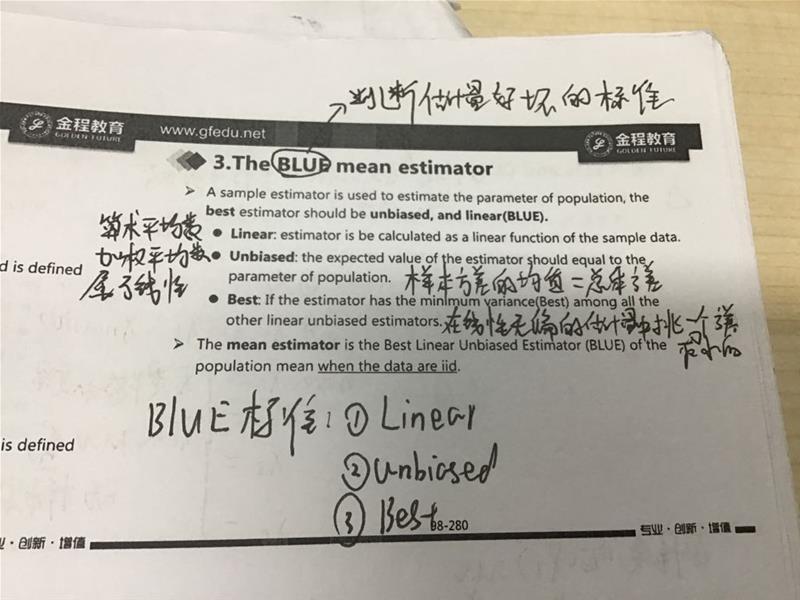 判断估计量好坏的标准
金程教育
GOLDEN FUTURE
www.gfedu.net
金程教育
GOLDEN FUTURE
3.The BLUE mean estimator
➢ A sample estimator is used to estimate the parameter of population, the
best estimator should be unbiased, and linear(BLUE).
算术平均数
加权平均数
属于线性
● Linear: estimator is be calculated as a linear function of the sample data.
d is defined
● Unbiased: the expected value of the estimator should equal to the
parameter of population. 样本方差的均值=总体方差
● Best: If the estimator has the minimum variance(Best) among all the
other linear unbiased estimators. 在线性无偏的估计量中挑一个方差
最小的
➢ The mean estimator is the Best Linear Unbiased Estimator (BLUE) of the
population mean when the data are iid.
BLUE标准: ① Linear
is defined
② Unbiased
③ Best
98-280
业·创新·增值
专业·创新·增值